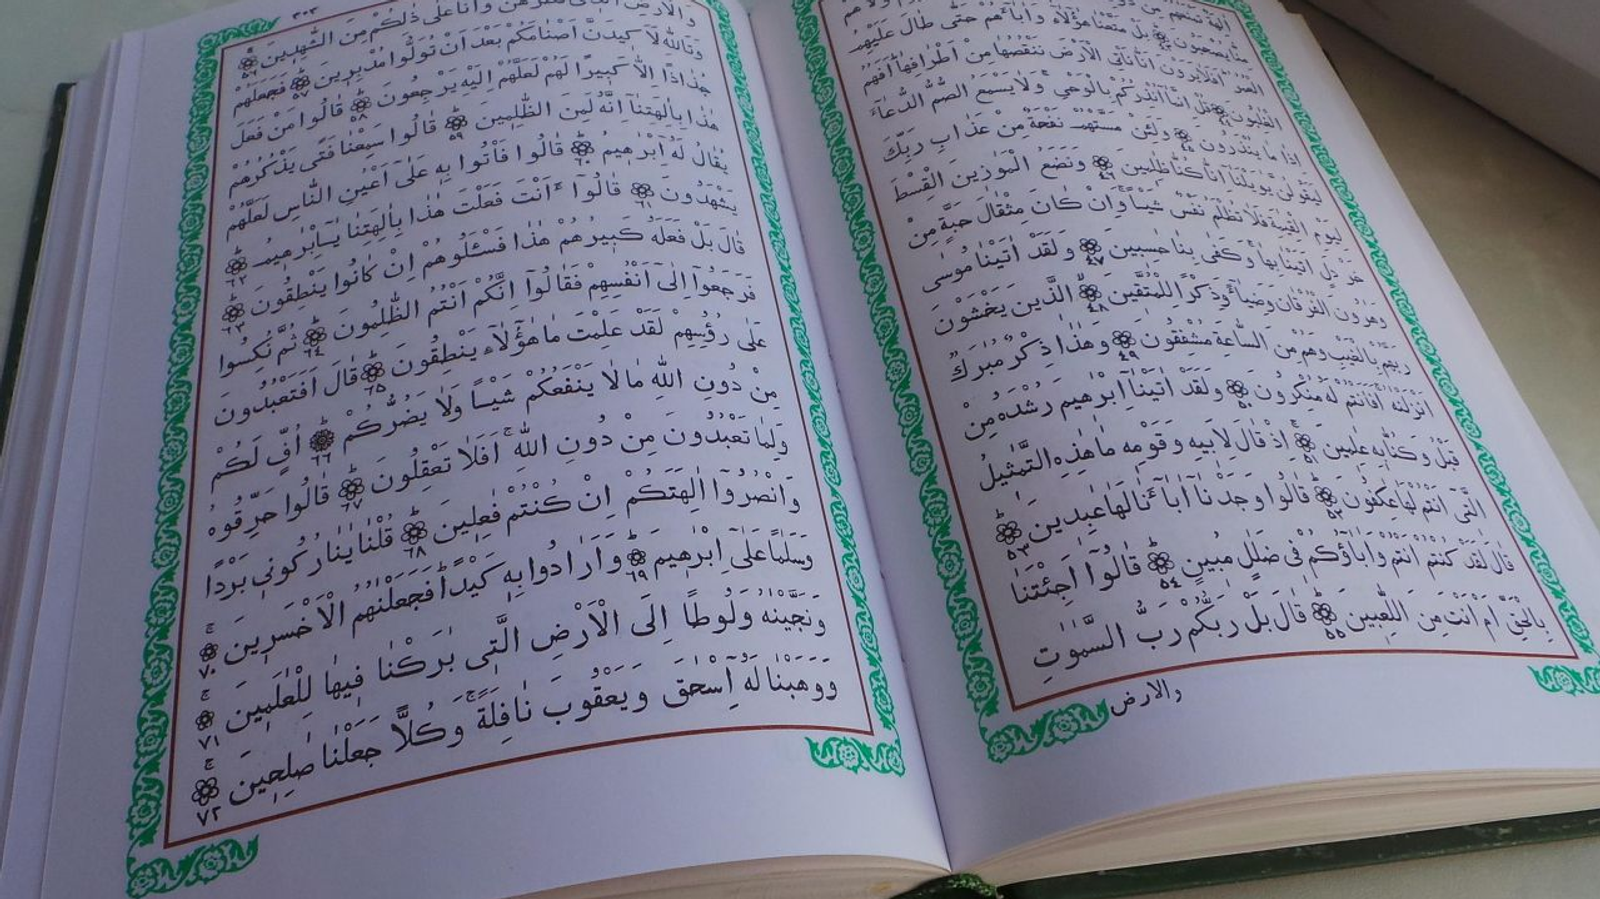 اٰلِهَةٌ تَمْنَعُهُمْ مِنْ
مِنَّا يُصْحَبُونَ ٤٣ بَلْ مَتَّعْنَا هٰٓؤُلَٓاءِ وَاٰبَٓاءَهُمْ حَتّٰى طَالَ عَلَيْهِمُ
الْعُمُرُ اَفَلَا يَرَوْنَ اَنَّا نَأْتِى الْاَرْضَ نَنْقُصُهَا مِنْ اَطْرَافِهَا اَفَهُمُ
الْغَالِبُونَ ٤٤ قُلْ اِنَّمَٓا اُنْذِرُكُمْ بِالْوَحْىِ وَلَا يَسْمَعُ الصُّمُّ الدُّعَٓاءَ
اِذَا مَا يُنْذَرُونَ ٤٥ وَلَئِنْ مَسَّتْهُمْ نَفْحَةٌ مِنْ عَذَابِ رَبِّكَ
لَيَقُولُنَّ يَا وَيْلَنَٓا اِنَّا كُنَّا ظَالِمِينَ ٤٦ وَنَضَعُ الْمَوَازِينَ الْقِسْطَ
لِيَوْمِ الْقِيٰمَةِ فَلَا تُظْلَمُ نَفْسٌ شَيْـًٔا وَاِنْ كَانَ مِثْقَالَ حَبَّةٍ مِنْ
خَرْدَلٍ اَتَيْنَا بِهَا وَكَفٰى بِنَا حَاسِبِينَ ٤٧ وَلَقَدْ اٰتَيْنَا مُوسٰى
وَهٰرُونَ الْفُرْقَانَ وَضِيَٓاءً وَذِكْرًا لِلْمُتَّقِينَ ٤٨ اَلَّذِينَ يَخْشَوْنَ
رَبَّهُمْ بِالْغَيْبِ وَهُمْ مِنَ السَّاعَةِ مُشْفِقُونَ ٤٩ وَهٰذَا ذِكْرٌ مُبَارَكٌ
اَنْزَلْنَاهُ اَفَاَنْتُمْ لَهُ مُنْكِرُونَ ٥٠ وَلَقَدْ اٰتَيْنَٓا اِبْرٰهِيمَ رُشْدَهُ مِنْ
قَبْلُ وَكُنَّا بِهِ عَالِمِينَ ٥١ اِذْ قَالَ لِاَبِيهِ وَقَوْمِهِ مَا هٰذِهِ التَّمَاثِيلُ
الَّتِٓى اَنْتُمْ لَهَا عَاكِفُونَ ٥٢ قَالُوا وَجَدْنَٓا اٰبَٓاءَنَا لَهَا عَابِدِينَ ٥٣
قَالَ لَقَدْ كُنْتُمْ اَنْتُمْ وَاٰبَٓاؤُكُمْ فِى ضَلَالٍ مُبِينٍ ٥٤ قَالُٓوا اَجِئْتَنَا
بِالْحَقِّ اَمْ اَنْتَ مِنَ اللَّاعِبِينَ ٥٥ قَالَ بَلْ رَبُّكُمْ رَبُّ السَّمٰوَاتِ
والارض
٣٠٣
وَالْاَرْضِ الَّذِى فَطَرَهُنَّ وَاَنَا عَلٰى ذٰلِكُمْ مِنَ الشَّاهِدِينَ ٥٦
وَتَاللّٰهِ لَاَكِيدَنَّ اَصْنَامَكُمْ بَعْدَ اَنْ تُوَلُّوا مُدْبِرِينَ ٥٧ فَجَعَلَهُمْ
جُذَاذًا اِلَّا كَبِيرًا لَهُمْ لَعَلَّهُمْ اِلَيْهِ يَرْجِعُونَ ٥٨ قَالُوا مَنْ فَعَلَ
هٰذَا بِاٰلِهَتِنَٓا اِنَّهُ لَمِنَ الظَّالِمِينَ ٥٩ قَالُوا سَمِعْنَا فَتًى يَذْكُرُهُمْ
يُقَالُ لَهُٓ اِبْرٰهِيمُ ٦٠ قَالُوا فَأْتُوا بِهِ عَلٰٓى اَعْيُنِ النَّاسِ لَعَلَّهُمْ
يَشْهَدُونَ ٦١ قَالُٓوا ءَاَنْتَ فَعَلْتَ هٰذَا بِاٰلِهَتِنَا يَٓا اِبْرٰهِيمُ ٦٢
قَالَ بَلْ فَعَلَهُ كَبِيرُهُمْ هٰذَا فَسْـَٔلُوهُمْ اِنْ كَانُوا يَنْطِقُونَ ٦٣
فَرَجَعُٓوا اِلٰٓى اَنْفُسِهِمْ فَقَالُٓوا اِنَّكُمْ اَنْتُمُ الظَّالِمُونَ ٦٤ ثُمَّ نُكِسُوا
عَلٰى رُؤُسِهِمْ لَقَدْ عَلِمْتَ مَا هٰٓؤُلَٓاءِ يَنْطِقُونَ ٦٥ قَالَ اَفَتَعْبُدُونَ
مِنْ دُونِ اللّٰهِ مَا لَا يَنْفَعُكُمْ شَيْـًٔا وَلَا يَضُرُّكُمْ ٦٦ اُفٍّ لَكُمْ
وَلِمَا تَعْبُدُونَ مِنْ دُونِ اللّٰهِ اَفَلَا تَعْقِلُونَ ٦٧ قَالُوا حَرِّقُوهُ
وَانْصُرُٓوا اٰلِهَتَكُمْ اِنْ كُنْتُمْ فَاعِلِينَ ٦٨ قُلْنَا يَا نَارُ كُونِى بَرْدًا
وَسَلَامًا عَلٰٓى اِبْرٰهِيمَ ٦٩ وَاَرَادُوا بِهِ كَيْدًا فَجَعَلْنَاهُمُ الْاَخْسَرِينَ ٧٠
وَنَجَّيْنَاهُ وَلُوطًا اِلَى الْاَرْضِ الَّتِى بَارَكْنَا فِيهَا لِلْعَالَمِينَ ٧١
وَوَهَبْنَا لَهُٓ اِسْحٰقَ وَيَعْقُوبَ نَافِلَةً وَكُلًّا جَعَلْنَا صَالِحِينَ ٧٢